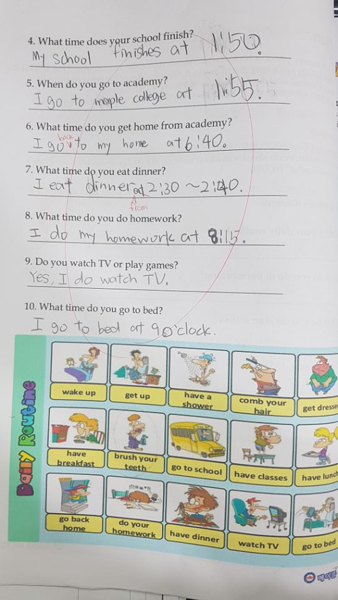 4. What time does your school finish?
My school finishes at 1:50.
5. When do you go to academy?
I go to meople college at 1:55.
6. What time do you get home from academy?
I go back to my home at 6:40.
7. What time do you eat dinner?
I eat dinner at 2:30 ~ 2:40.
from
8. What time do you do homework?
I do my homework at 8:15.
9. Do you watch TV or play games?
Yes, I do watch TV.
10. What time do you go to bed?
I go to bed at 9o'clock.
Daily Routine
wake up
get up
have a shower
comb your hair
get dresse
have breakfast
brush your teeth
go to school
have classes
have lunch
go back home
do your homework
have dinner
watch TV
go to bed